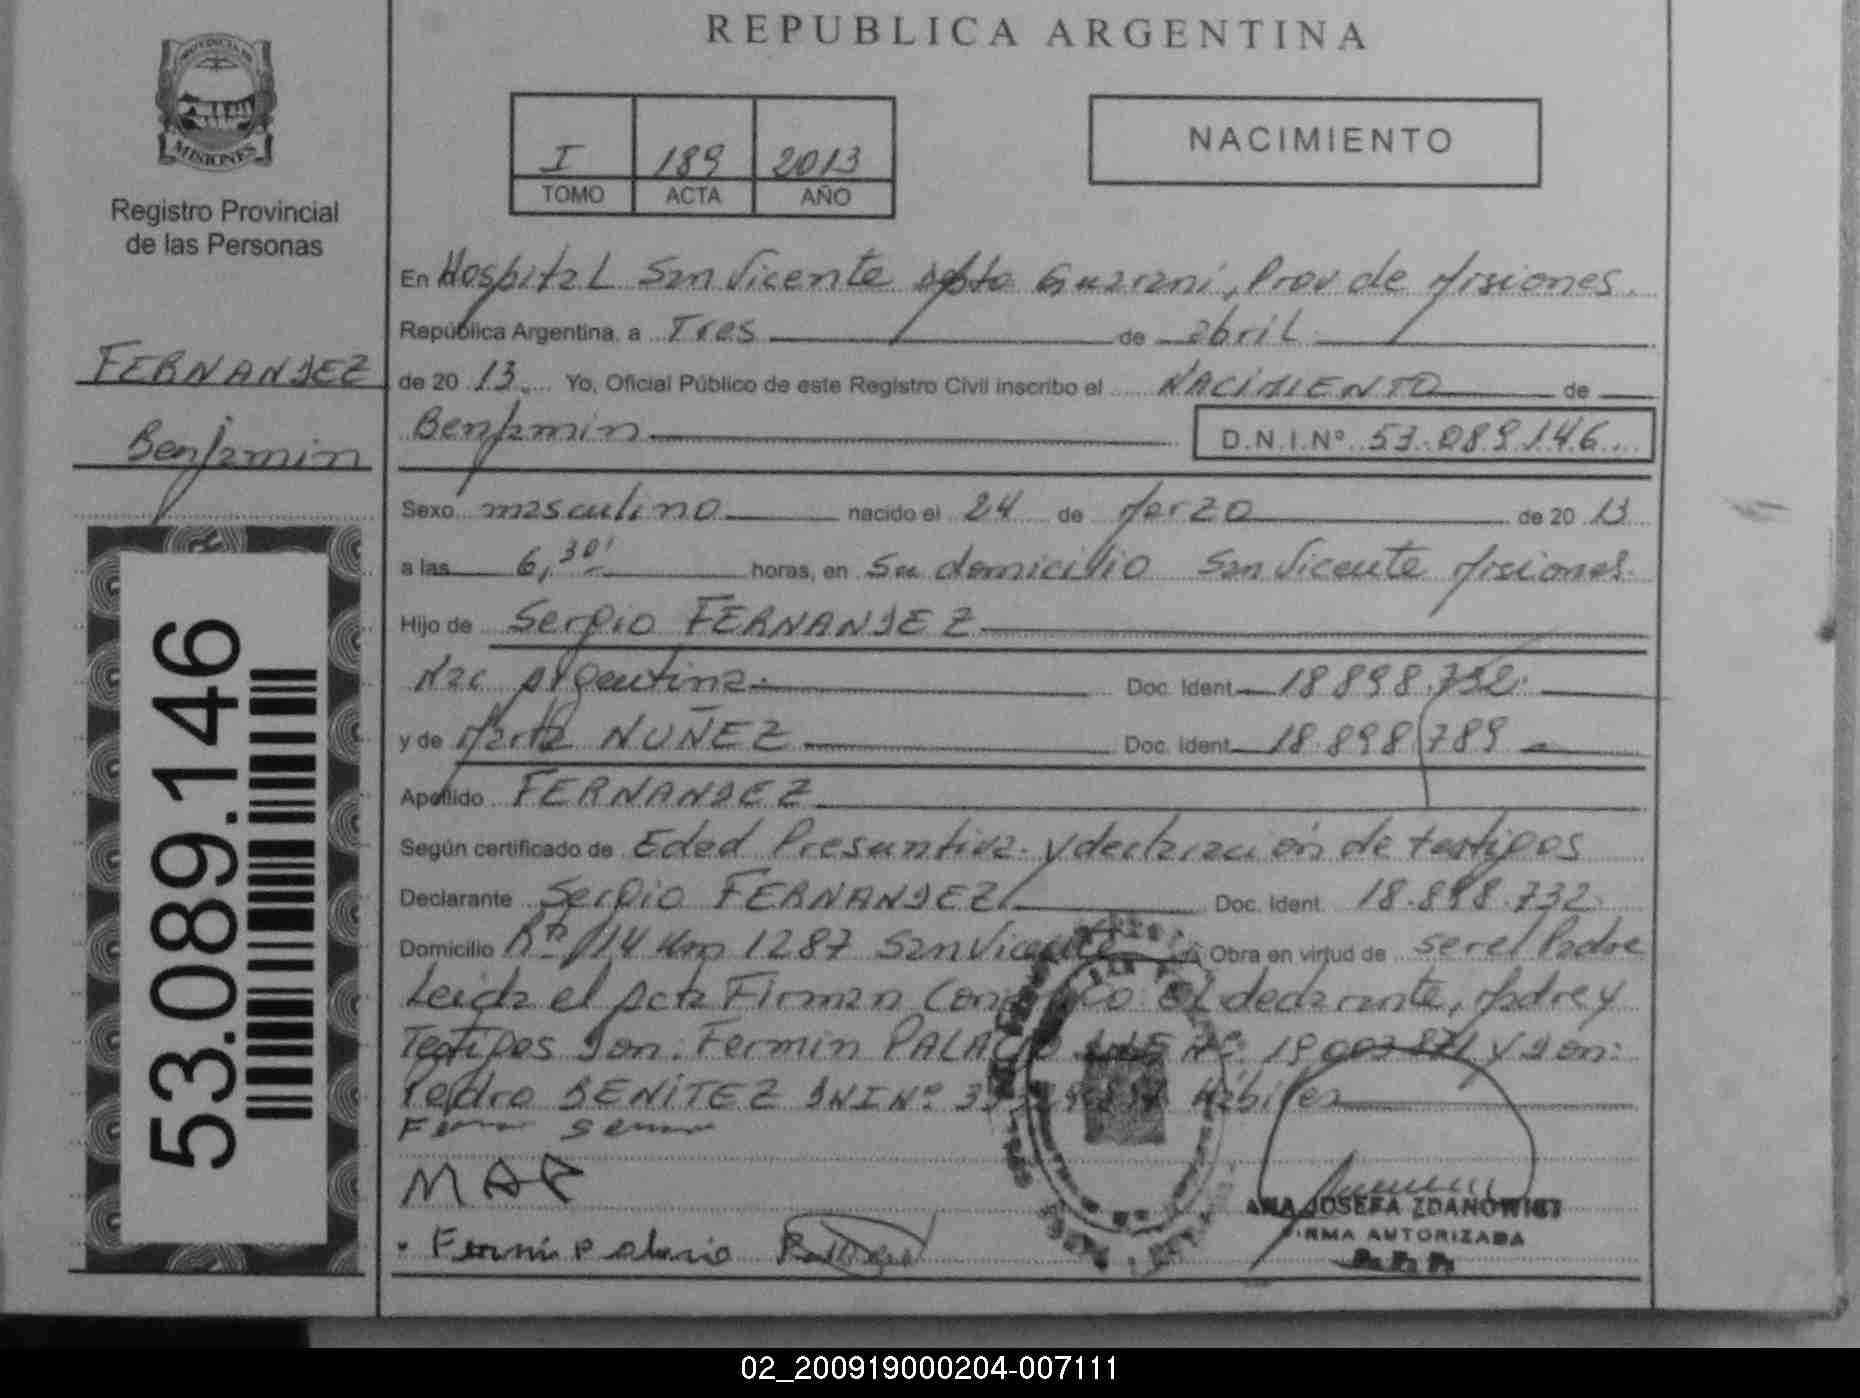 REPUBLICA ARGENTINA
PROVINCIA DE
MISIONES
Registro Provincial
de las Personas
I 189 2013
TOMO ACTA AÑO
NACIMIENTO
FERNANDEZ
Benjamin
53.089.146
En Hospital San Vicente Dpto Guarani, Prov de Misiones.
República Argentina, a Tres de abril
de 20 13. Yo, Oficial Público de este Registro Civil inscribo el NACIMIENTO de
Benjamin D.N.I.Nº 53.089.146
Sexo masculino nacido el 24 de Marzo de 20 13
a las 6,30' horas, en Su domicilio San Vicente Misiones.
Hijo de Sergio FERNANDEZ
Nac Argentina. Doc. Ident. 18898.732.
y de Marta NUÑEZ Doc. Ident. 18.898.789
Apellido FERNANDEZ
Según certificado de Edad Presuntiva y declaración de testigos
Declarante Sergio FERNANDEZ Doc. Ident. 18.898.732.
Domicilio Rta 14 Km 1287 San Vicente Obra en virtud de ser el Padre
Leida el Acta Firman Conmigo El declarante, Madre y
Testigos Don. Fermin PALACIO DNI Nº 19 y Don:
Pedro BENITEZ DNI Nº Hábiles
MAR
Fermin Palacio
ANA JOSEFA ZDANOWICZ
FIRMA AUTORIZADA
R.P.P.
02_200919000204-007111